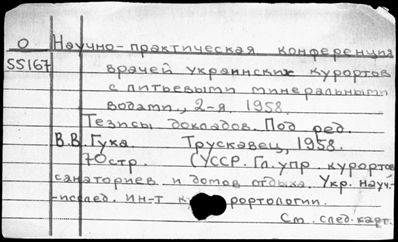 О Научно-практическая конференция
55167 врачей украинских курортов
с питьевыми минеральными
водами., 2-я. 1958.
Тезисы докладов. Под ред.
В.В. Гука. Трускавец, 1958.
70стр. (УССР. Гл.упр. курортов
санаториев и домов отдыха. Укр. науч.-
-исслед. ин-т к рортологии.
См. след. карт.